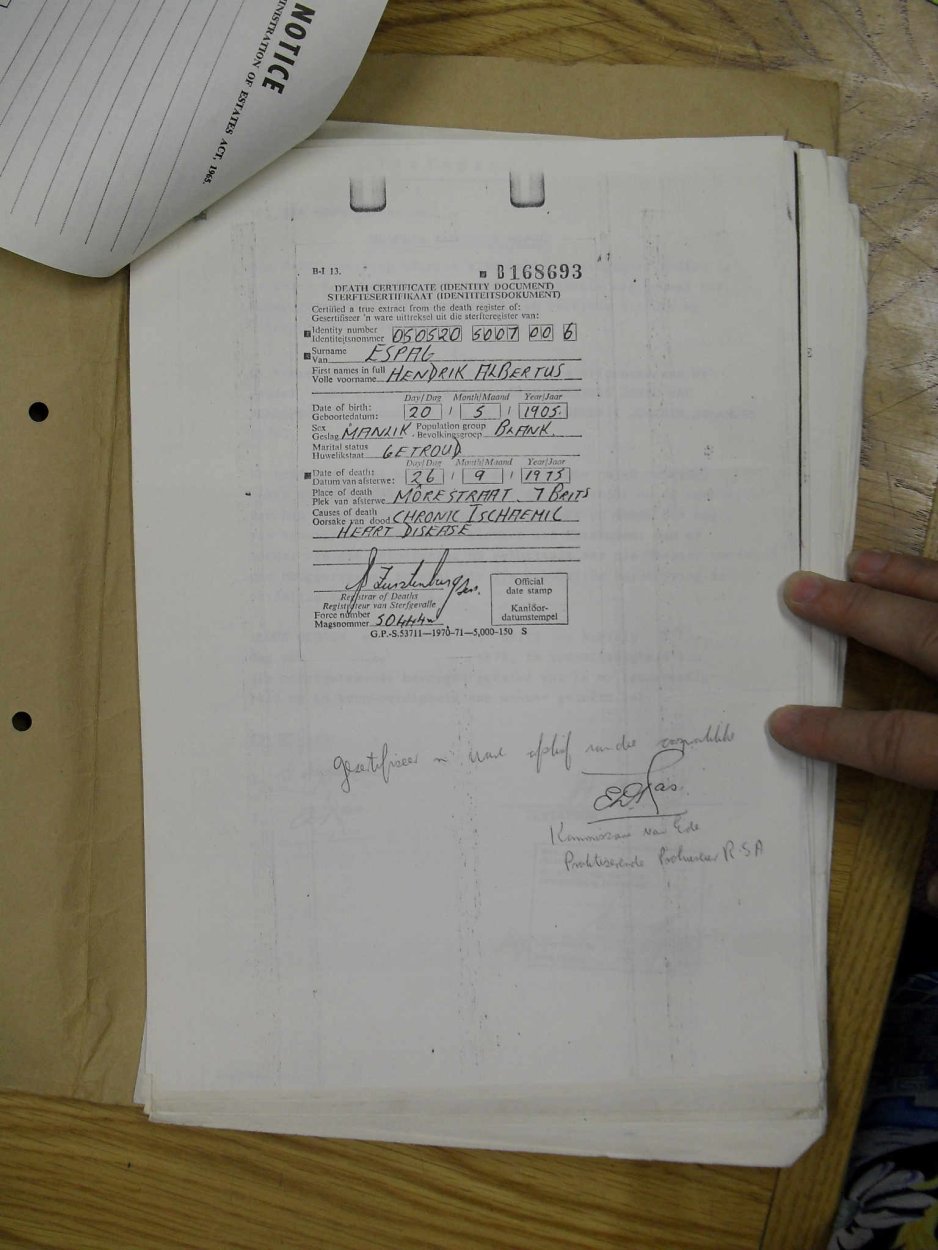 NOTICE
INISTRATION OF ESTATES ACT, 1965.
B-I 13. B168693
DEATH CERTIFICATE (IDENTITY DOCUMENT)
STERFTESERTIFIKAAT (IDENTITEITSDOKUMENT)
Certified a true extract from the death register of:
Gesertifiseer 'n ware uittreksel uit die sterfteregister van:
Identity number
Identiteitsnommer 050520 5007 00 6
Surname
Van ESPAG
First names in full
Volle voorname HENDRIK ALBERTUS
Day/Dag Month/Maand Year/Jaar
Date of birth:
Geboortedatum: 20 / 5 / 1905.
Sex Population group
Geslag MANLIK. Bevolkingsgroep BLANK.
Marital status
Huwelikstaat GETROUD
Day/Dag Month/Maand Year/Jaar
Date of death:
Datum van afsterwe: 26 / 9 / 1975
Place of death
Plek van afsterwe MORESTRAAT 7 BRITS
Causes of death
Oorsake van dood CHRONIC ISCHAEMIC
HEART DISEASE
Registrar of Deaths
Registrateur van Sterfgevalle
Force number
Magsnommer 50444
Official
date stamp
Kantoor-
datumstempel
G.P.-S.53711—1970-71—5,000-150 S
Gesertifiseer n ware afskrif van die oorspronklike
Kommissaris van Ede
Praktiserende Prokureur R S A